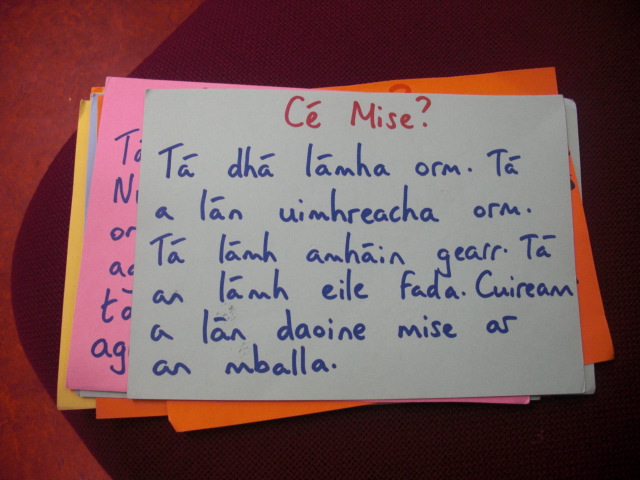 Cé Mise?
Tá dhá lámha orm. Tá
a lán uimhreacha orm.
Tá lámh amháin gearr. Tá
an lámh eile fada. Cuireann
a lán daoine mise ar
an mballa.